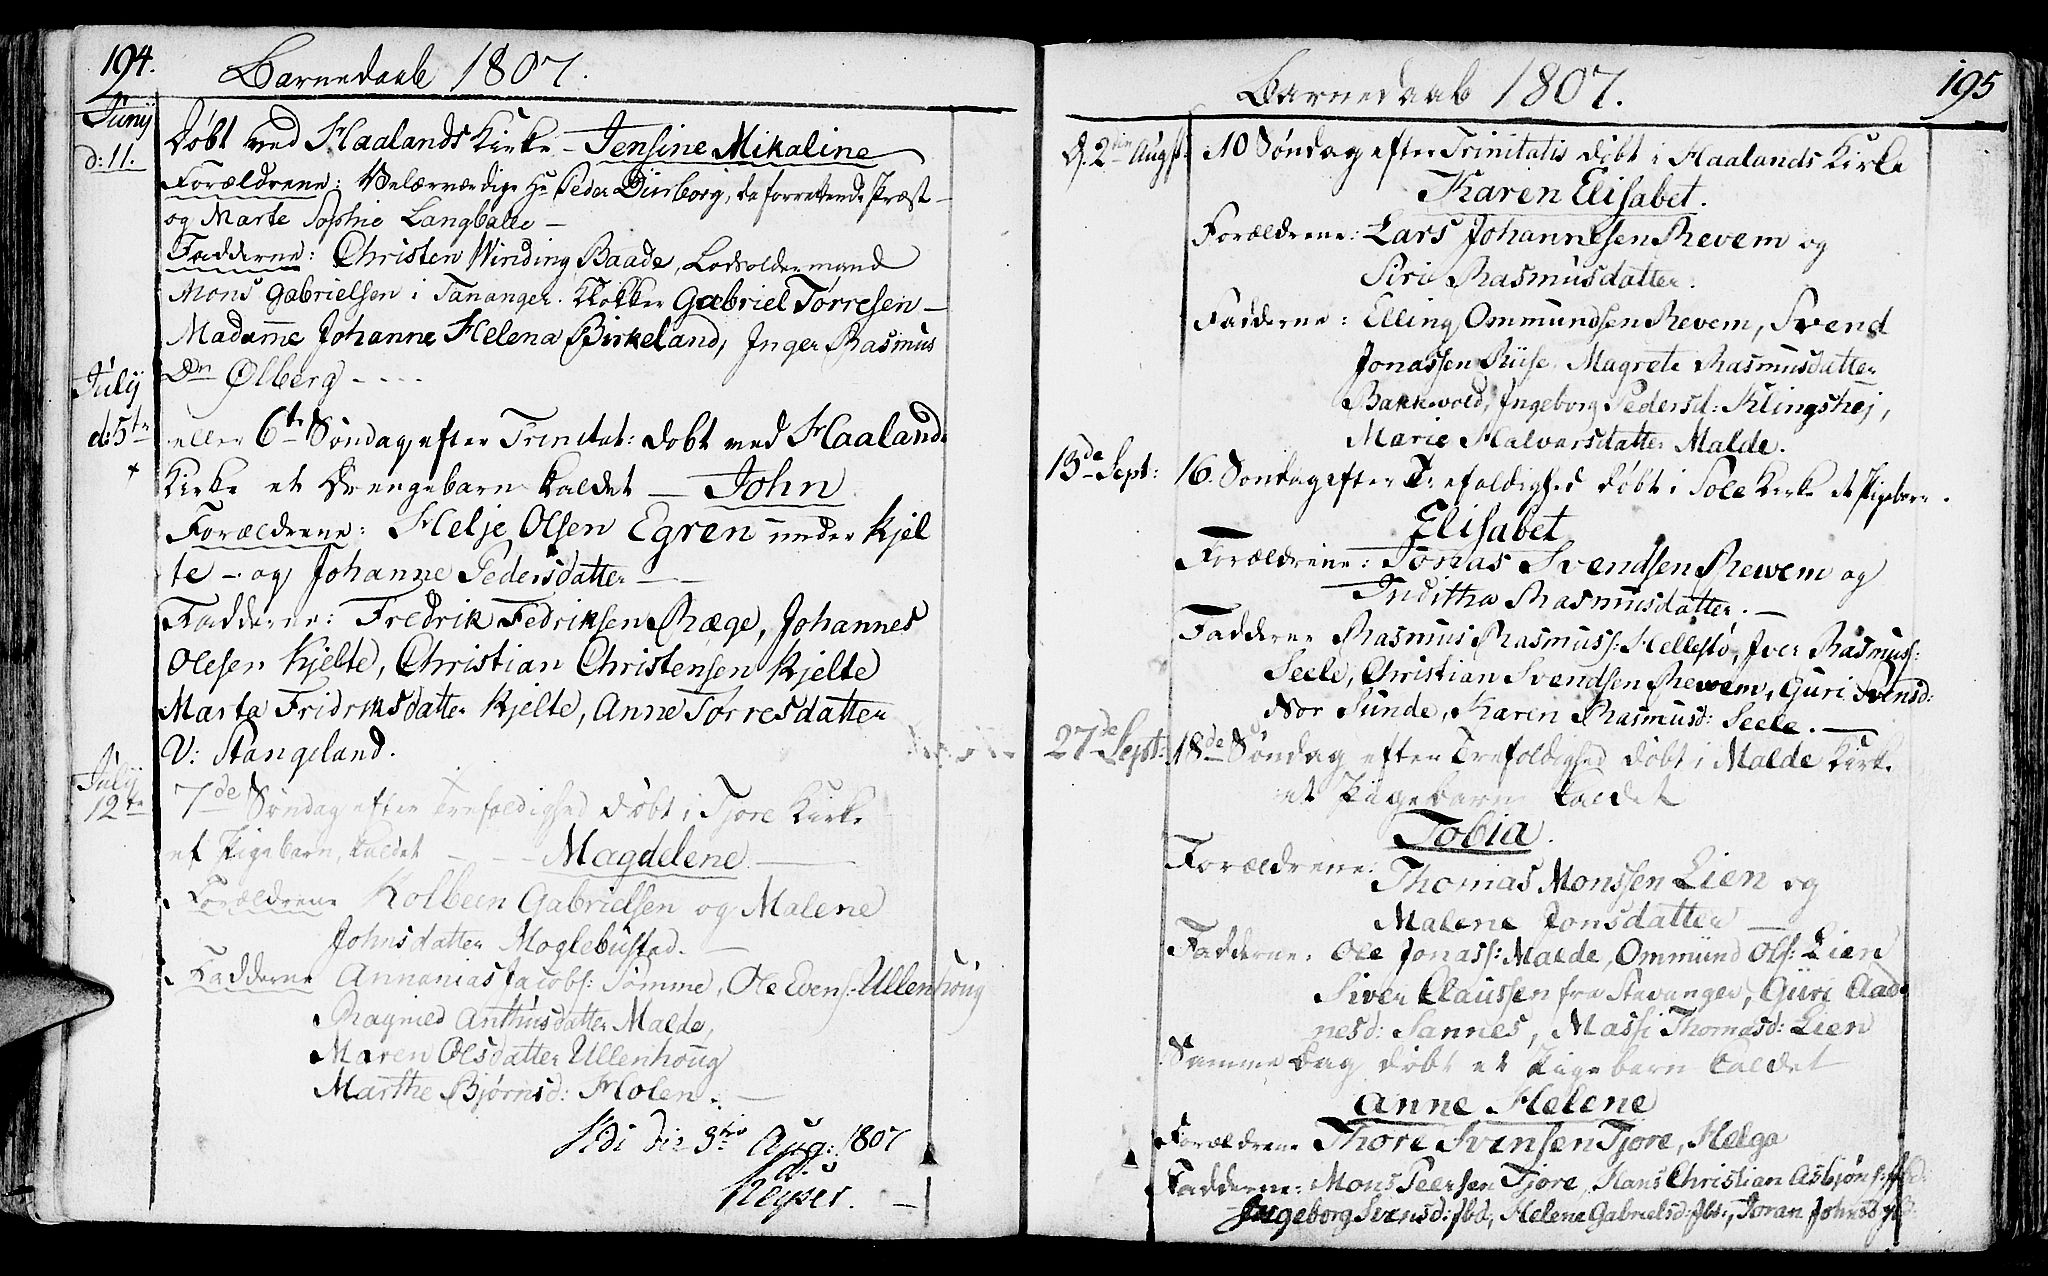 194.
Barnedaab 1807.
Juny
d: 11.
Døbt ved Haalands Kirke - Jensine Mikaline
Forældrene: Velærværdige Hr Peder Dürborg, da forrettende Præst -
og Marte Sophie Langballe -
Fadderne: Christen Winding Baade, Lodsoldermand
Mons Gabrielsen i Tananger. Klokker Gabriel Tørresen -
Madame Johanne Helena Birkeland, Inger Rasmus
Dn Ølberg - - - -
July
d: 5te
eller 6te Søndag efter Trinitat: døbt ved Haalands
Kirke et Drengebarn kaldet - John
Forældrene: Helje Olsen Egren under Kjel
te - og Johanne Pedersdatter - -
Fadderne: Fredrik Fedriksen Ræge, Johannes
Olesen Kjelte, Christian Christensen Kjelte
Marta Fridriksdatter Kjelte, Anne Torresdatter
V: Stangeland.
July
12te
7de Søndag efter Trefoldighed døbt i Tjore Kirke
et Pigebarn, kaldet - - - Magdelene -
Forældrene Kolbeen Gabrielsen og Malene
Johnsdatter Moglebustad. -
Fadderne Annanias Jacobs: Sømme, Ole Evens: Ullenhoug
Ragnied Anthusdatter Malde,
Maren Olsdatter Ullenhoug
Marthe Bjørnsd: Holen. -
Vidi die 3tio Aug: 1807
Keyser. -
195
Barnedaab 1807.
D. 2den Augst:
10 Søndag efter Trinitatis døbt i Haalands Kirke
Karen Elisabet.
Forældrene: Lars Johannesen Revem og
Siri Rasmusdatter.
Fadderne: Elling Ommundsen Revem, Svend
Jonassen Riise, Magrete Rasmusdatter
Bakkevold, Ingeborg Pedersd: Klingshej,
Marie Halvarsdatter Malde.
13de Sept:
16. Søndag efter Trefoldighed døbt i Sole Kirke et Pigebarn.
Elisabet
Forældrene: Tomas Svendsen Rewem og
Juditha Rasmusdatter. -
Fadderne Rasmus Rasmuss: Hellestø, Iver Rasmuss:
Seele, Christian Svendsen Rewem, Guri Svensd:
Nor Sunde, Karen Rasmusd: Seele. -
27de Sept:
18de Søndag efter Trefoldighed døbt i Malde Kirke
et Pigebarn kaldet
Tobia.
Forældrene: Thomas Monssen Lien og
Malene Jonsdatter -
Fadderne: Ole Jonass: Malde, Ommund Ols: Lien
Siver Claussen fra Stavanger, Guri Aad
nesd: Sannes, Massi Thomasd: Lien
Samme Dag døbt et Pigebarn kaldet
Anne Helene
Forældrene Thore Svensen Tjore, Helga
Fadderne: Mons Peersen Tjore, Hans Christian Asbjøns:
Ingeborg Svensd: Ibd, Helene Gabrielsd: Ibd:, Joran Johnsd